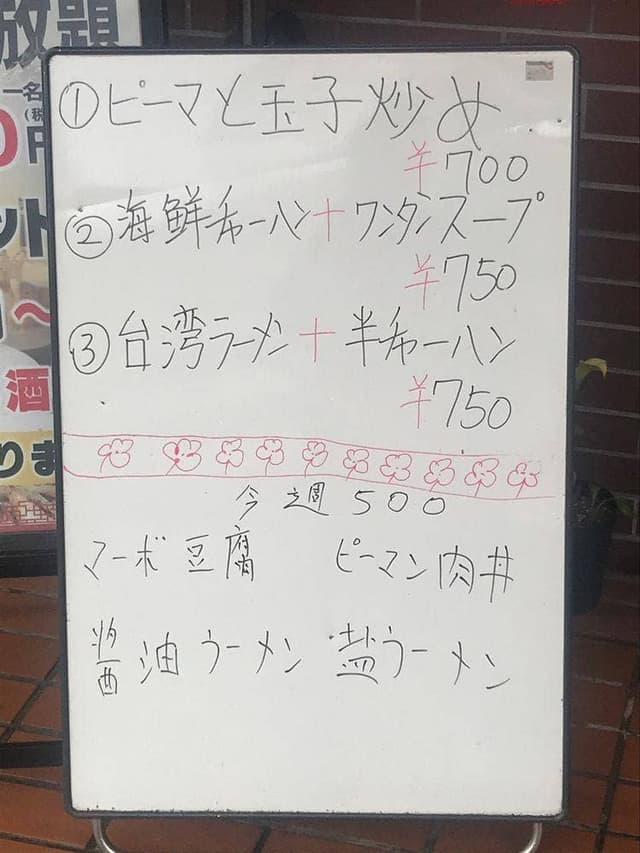 放題
一名
(税
0円
ット
〜
酒
りま
①ピーマと玉子炒め
¥700
②海鮮チャーハン+ワンタンスープ
¥750
③台湾ラーメン+半チャーハン
¥750
今週500
マーボ豆腐 ピーマン肉丼
醤油ラーメン 塩ラーメン